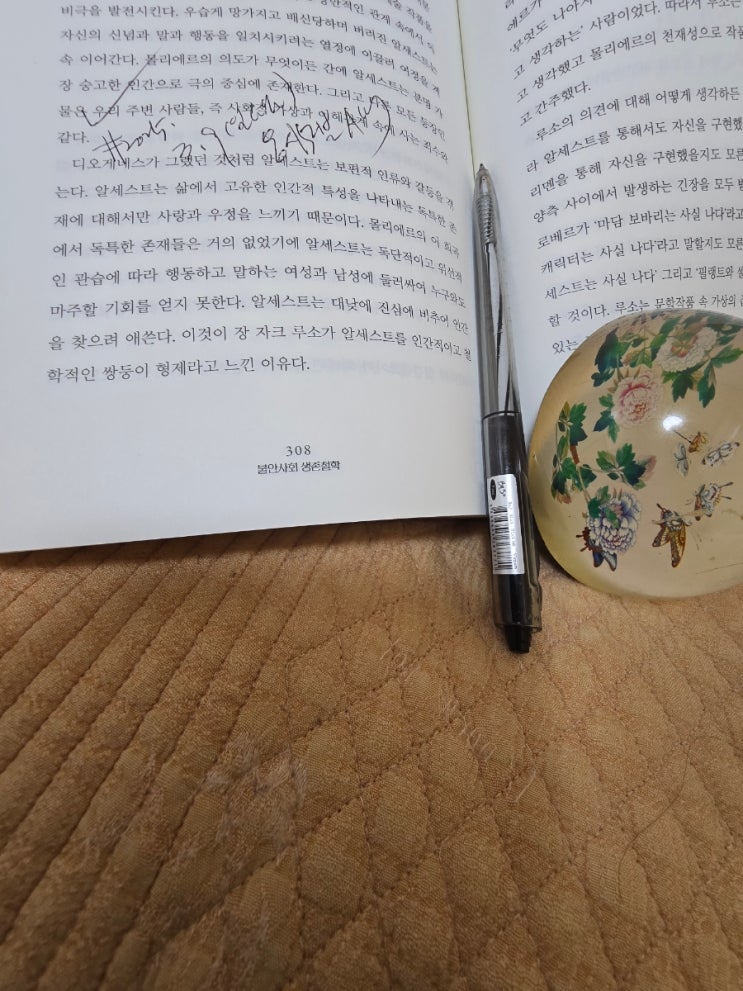 비극을 발전시킨다. 우습게 망가지고 배신당하며 버려진 알세스트는
자신의 신념과 말과 행동을 일치시키려는 열정에 이끌려 여정을 계
속 이어간다. 몰리에르의 의도가 무엇이든 간에 알세스트는 분명 가
장 숭고한 인간으로 극의 중심에 존재한다. 그리고 다른 모든 등장인
물은 우리 주변 사람들, 즉 속에 사는 죄수와
같다.
디오게네스가 그랬던 것처럼 알세스트는 보편적 인류와 갈등을 겪
는다. 알세스트는 삶에서 고유한 인간적 특성을 나타내는 독특한 존
재에 대해서만 사랑과 우정을 느끼기 때문이다. 몰리에르의 이 희곡
에서 독특한 존재들은 거의 없었기에 알세스트는 독단적이고 위선적
인 관습에 따라 행동하고 말하는 여성과 남성에 둘러싸여 누구와도
마주할 기회를 얻지 못한다. 알세스트는 대낮에 진심에 비추어 인간
을 찾으려 애쓴다. 이것이 장 자크 루소가 알세스트를 인간적이고 철
학적인 쌍둥이 형제라고 느낀 이유다.
308
불안사회 생존철학
에르가
'무엇도 나아지
고 생각하는' 사람이었다. 따라서 루소는
고 생각했고 몰리에르의 천재성으로 작품
고 간주했다.
루소의 의견에 대해 어떻게 생각하든
라 알세스트를 통해서도 자신을 구현했
리멘을 통해 자신을 구현했을지도 모른
양측 사이에서 발생하는 긴장을 모두
로베르가 '마담 보바리는 사실 나다'라고
캐릭터는 사실 나다'라고 말할지도 모른
세스트는 사실 나다' 그리고 '필랭트와
할 것이다. 루소는 문학작품 속 가상의
있는